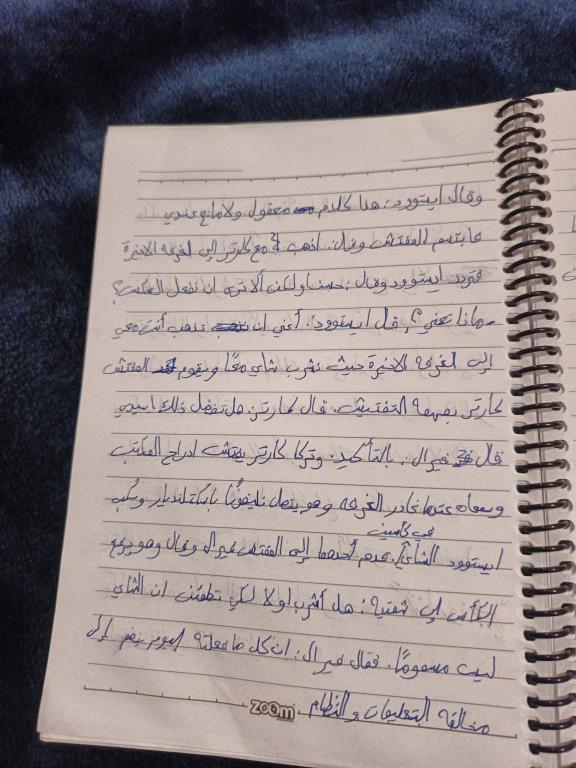 وقال ايستوود: هذا كلام معقول ولا مانع عندي
فابتسم المفتش وقال: اذهب مع كارتر إلى الغرفة الاخيرة
فتردد ايستوود وقال: حسنا ولكن ألا ترى ان نفعل العكس؟
- ماذا تعني؟, قال ايستوود: أعني ان تذهب أنت معي
إلى الغرفة الاخيرة حيث نشرب شاي معًا ويقوم المفتش
كارتر بمهمة التفتيش. قال كارتر: هل تفضل ذلك ياسيدي
قال فيرال: بالتأكيد. وتركا كارتر يفتش ادراج المكتب
وسمعاه عندما غادر الغرفة وهو يتصل تليفونًا باسكتلنديارد وسكب
ايستوود الشاي في كأسين قدم أحدهما إلى المفتش فيرال وقال وهو يرفع
الكأس إلى شفتيه: هل أشرب اولا لكي تطمئن ان الشاي
ليس مسمومًا. فقال فيرال: ان كل ما فعلته اليوم ينم إلى
مخالفة التعليمات والنظام
zoom